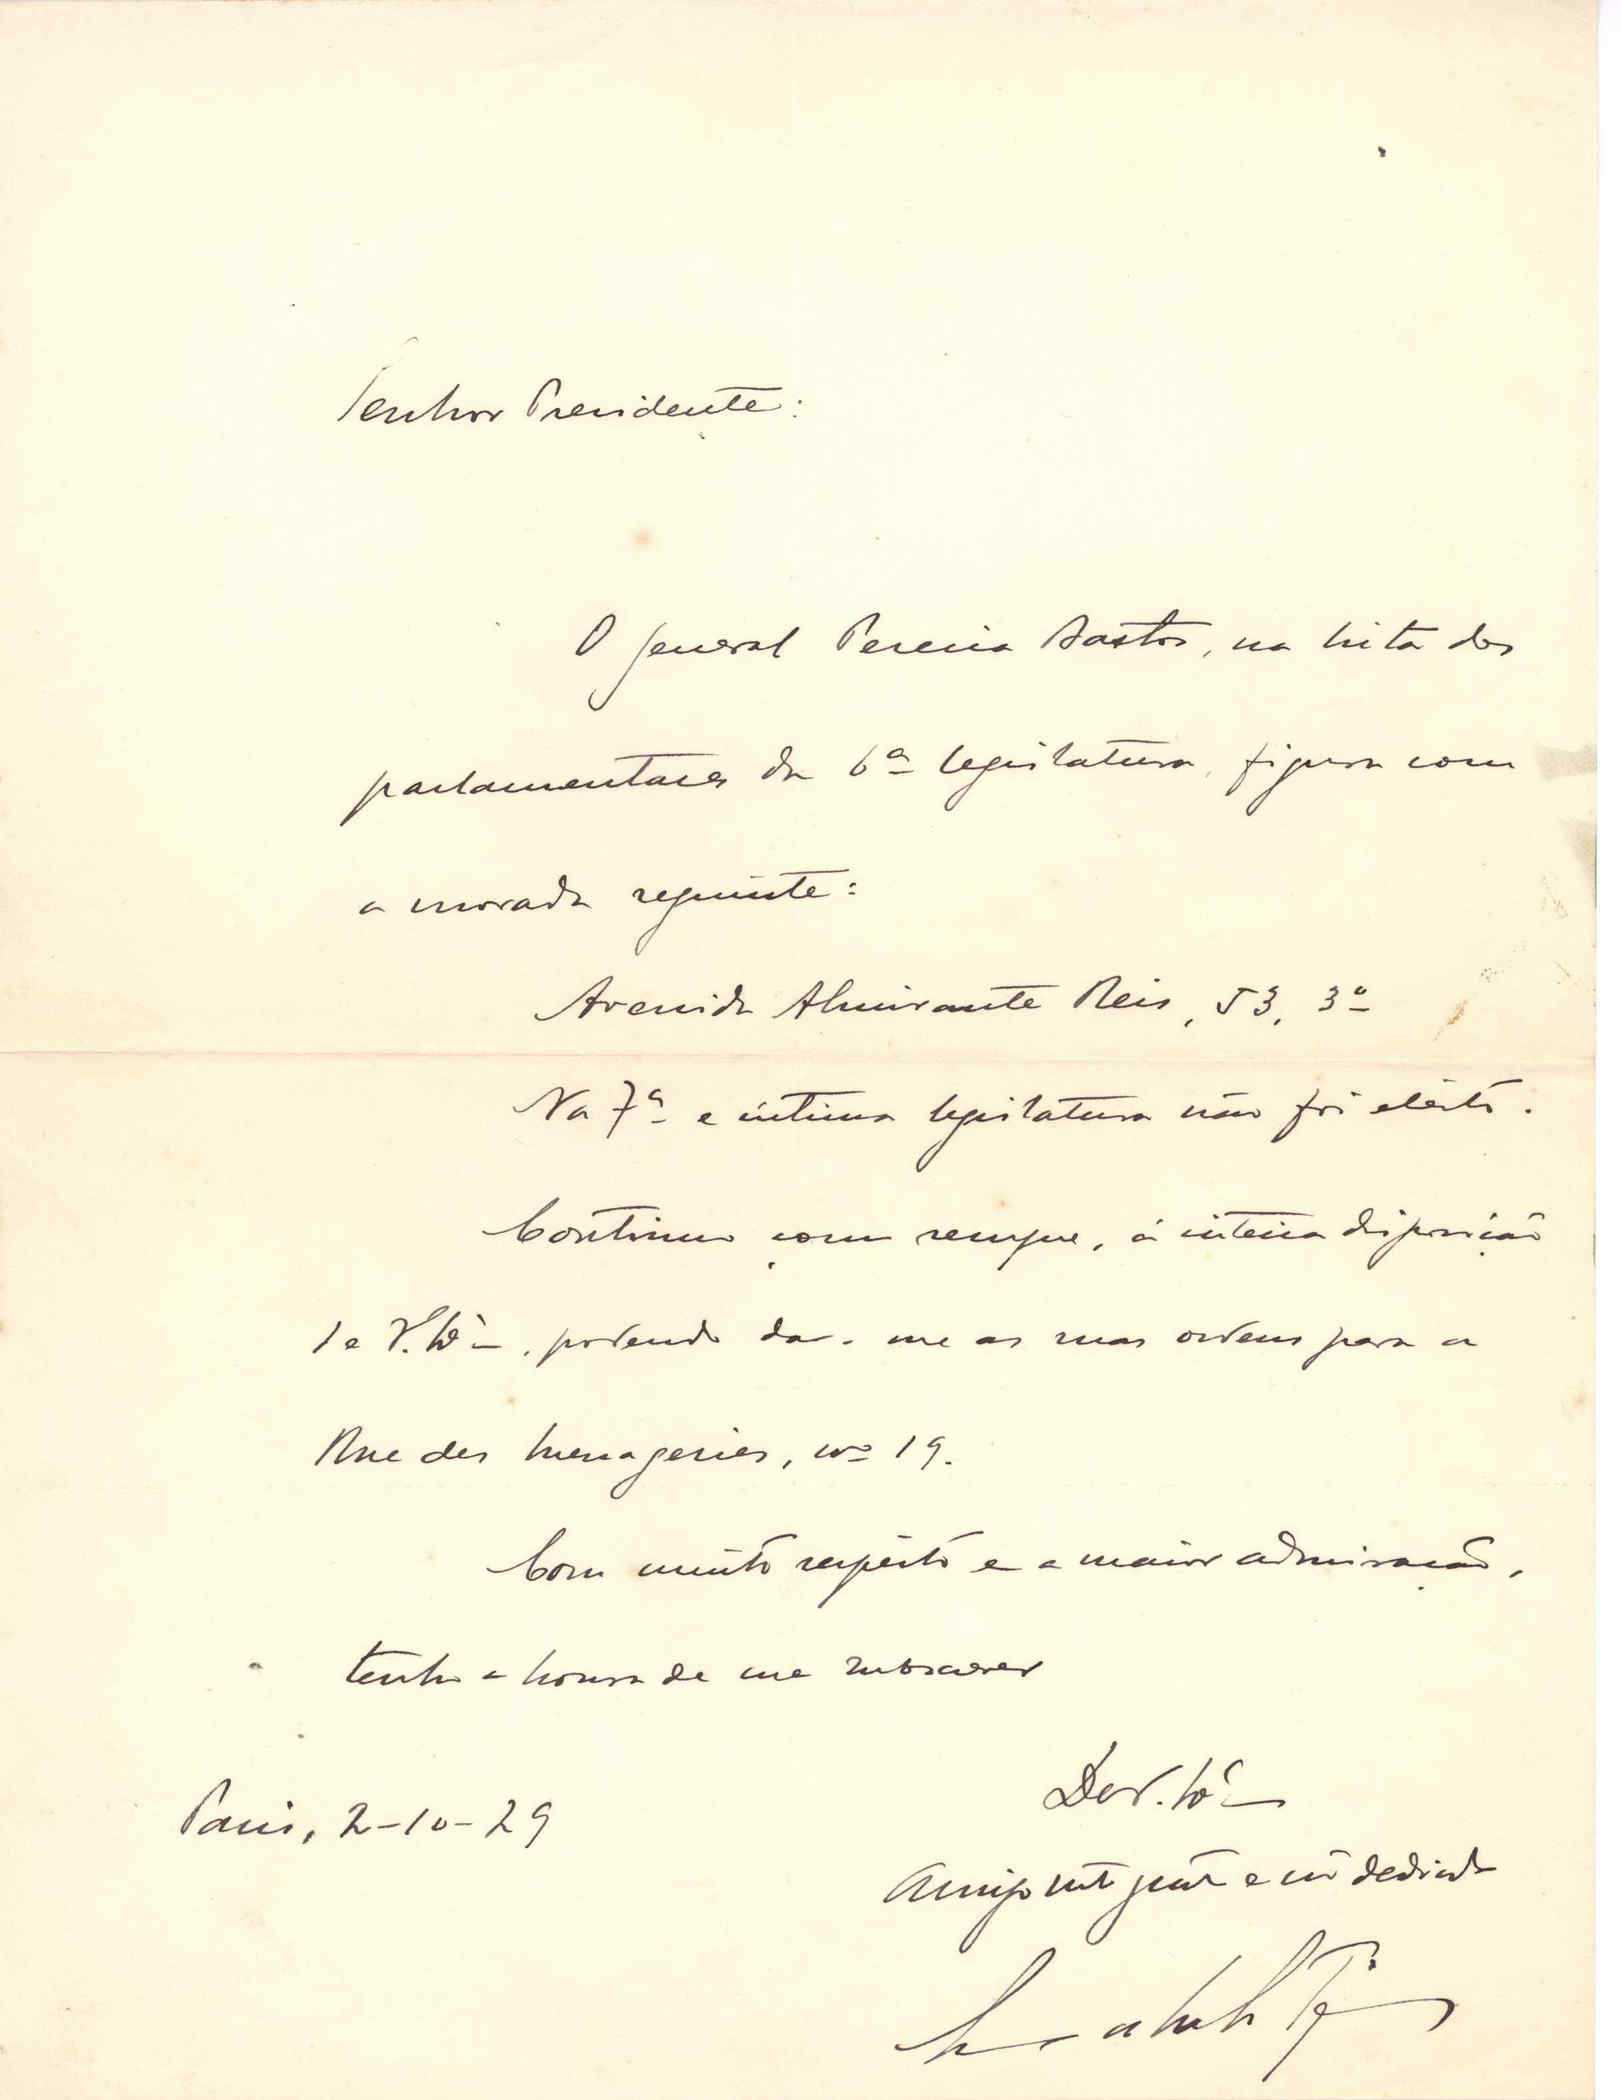 Senhor Presidente:
O general Pereira Bastos, na lista dos
parlamentares da 6ª legislatura, figura com
a morada seguinte:
Avenida Almirante Reis, 53, 3º
Na 7ª e última legislatura não foi eleito.
Continuo como sempre, á inteira disposição
de V. Exª, podendo dar-me as suas ordens para a
Rue des Menageries, nº 19.
Com muito respeito e a maior admiração,
tenho a honra de me subscrever
De V. Exª
Paris, 2-10-29
Amigo mtº gratº e mº dedicado